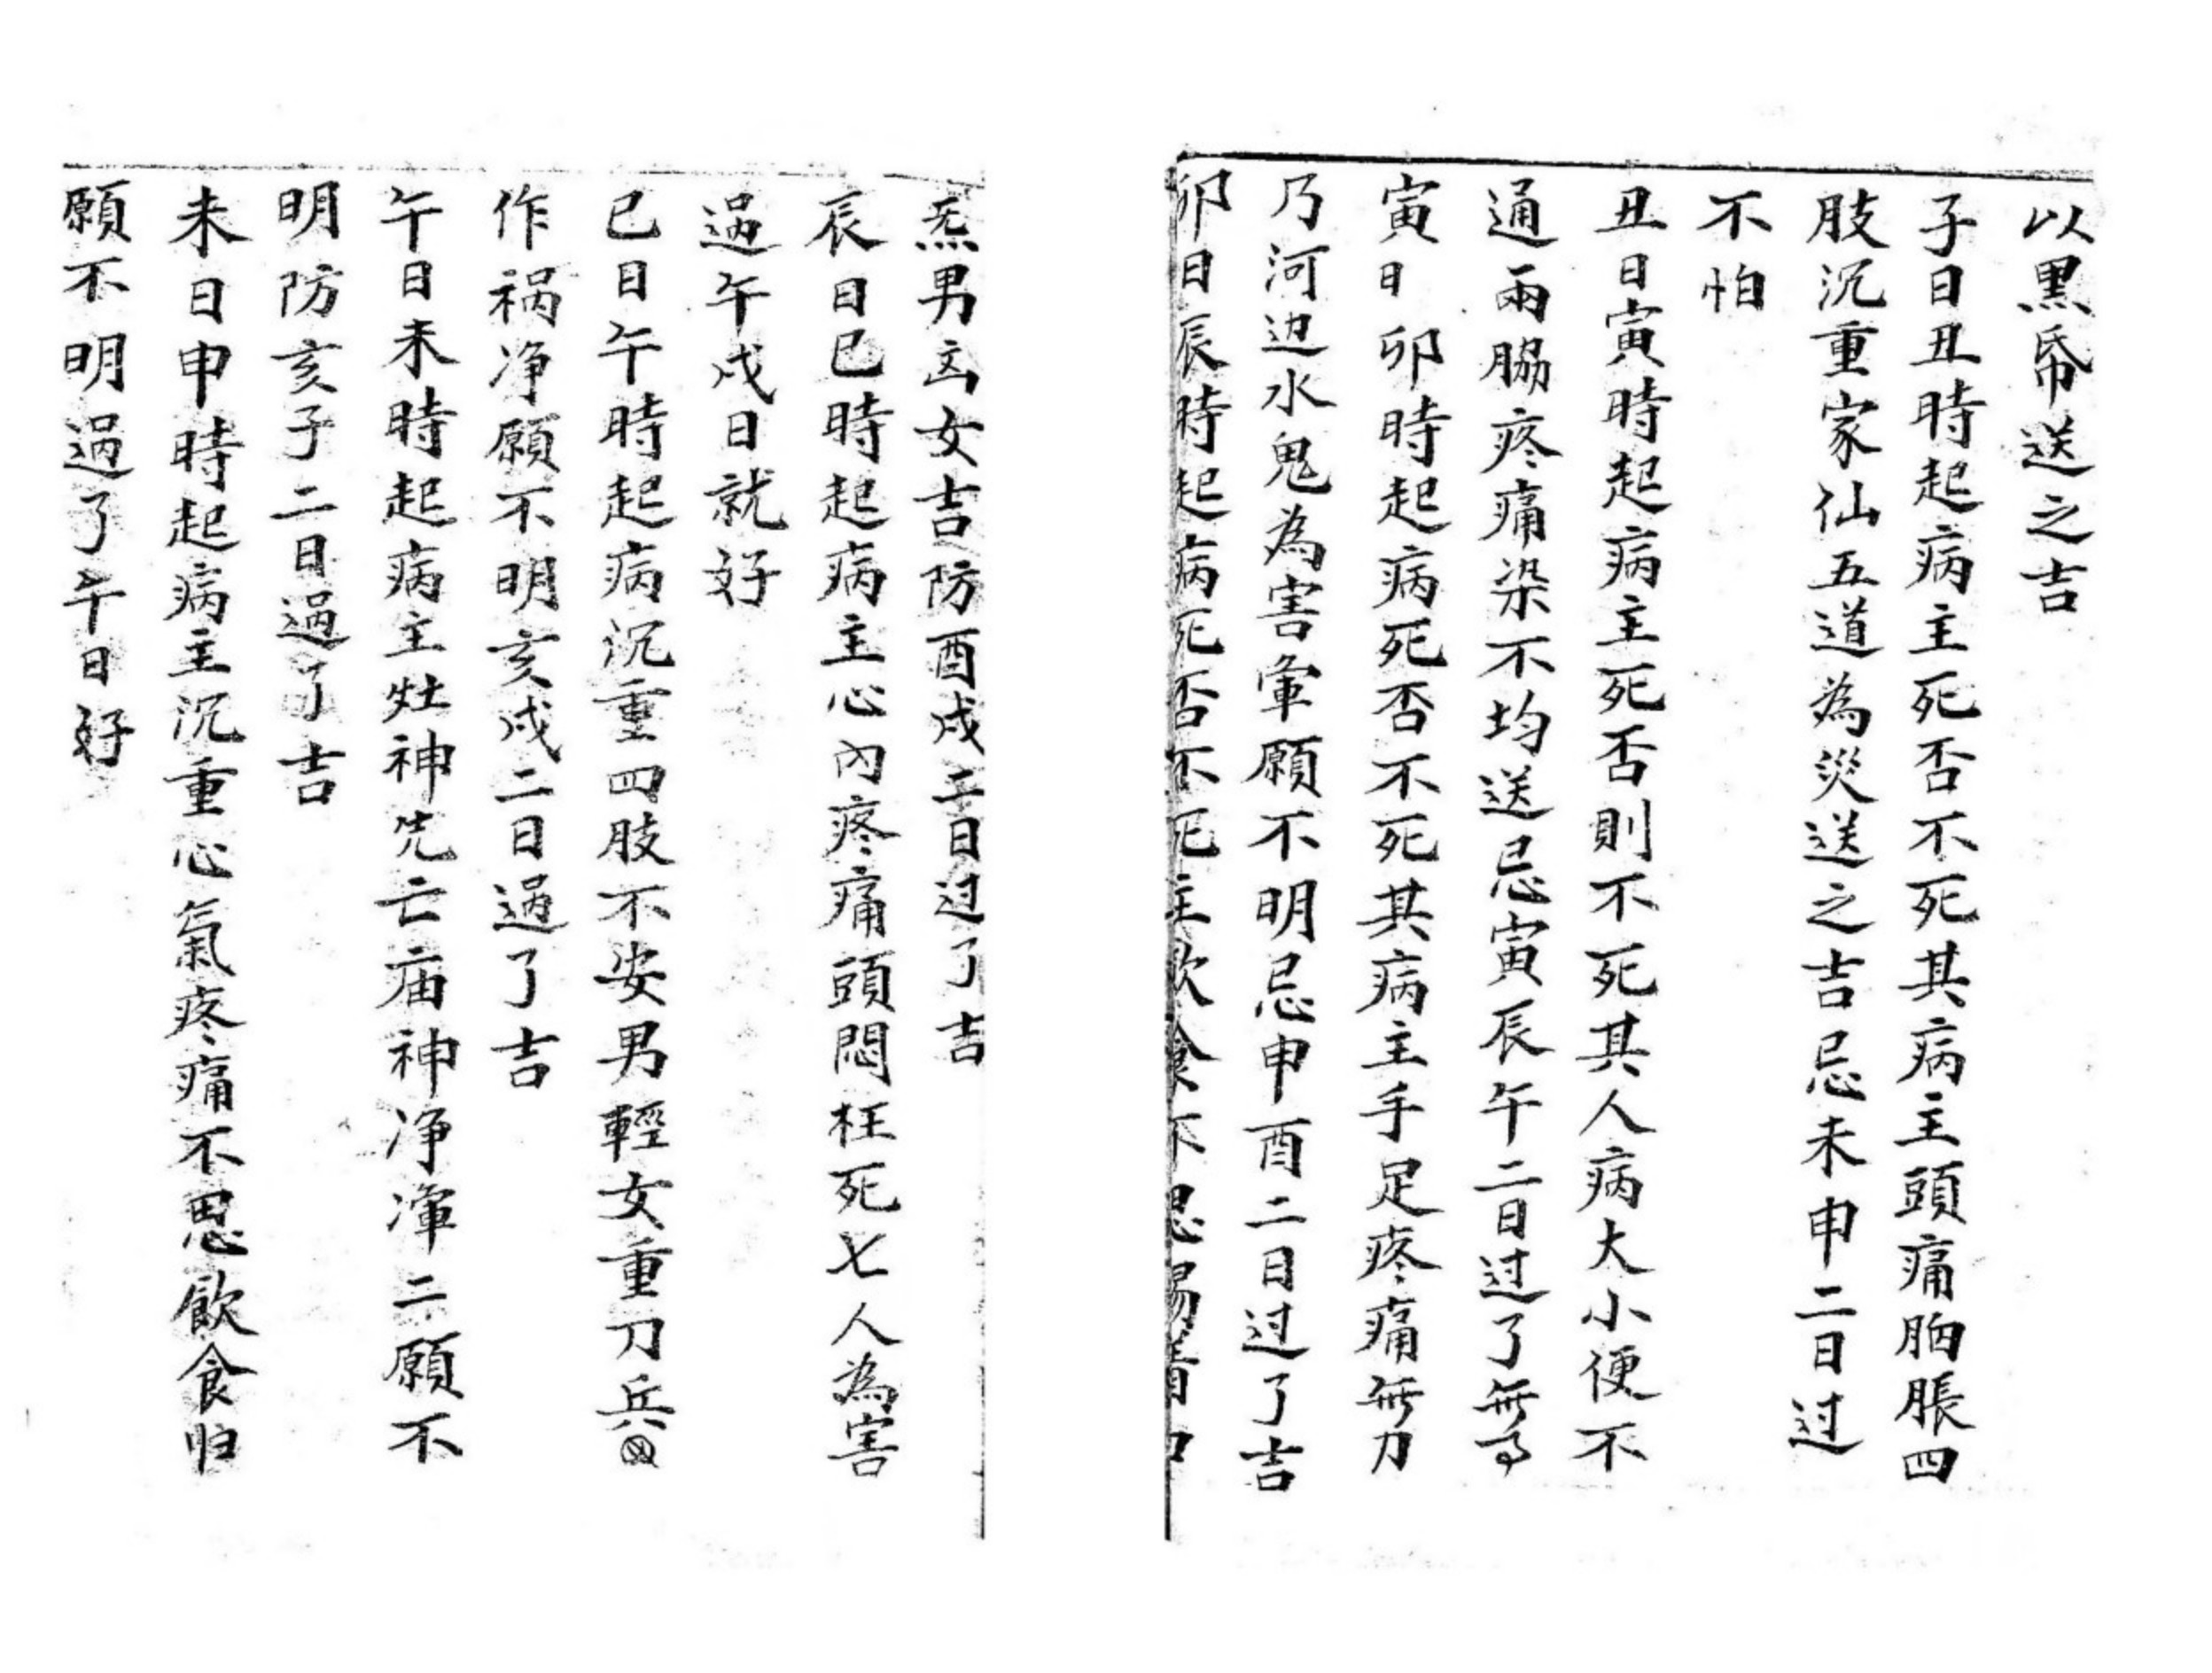 以黑帋送之吉
子日丑時起病主死否不死其病主頭痛胸脹四
肢沉重家仙五道為災送之吉忌未申二日过
不怕
丑日寅時起病主死否則不死其人病大小便不
通兩脇疼痛染不均送忌寅辰午二日过了無事
寅日卯時起病死否不死其病主手足疼痛無力
乃河边水鬼為害葷願不明忌申酉二日过了吉
卯日辰時起病死否不死主飲食不思陽者
炁男凶女吉防酉戍二日过了吉
辰日巳時起病主心內疼痛頭悶枉死七人為害
過午戍日就好
巳日午時起病沉重四肢不安男輕女重刀兵
作祸净願不明亥戍二日過了吉
午日未時起病主灶神先亡庙神净渾二願不
明防亥子二日過了吉
未日申時起病主沉重心氣疼痛不思飲食旧
願不明過了午日好